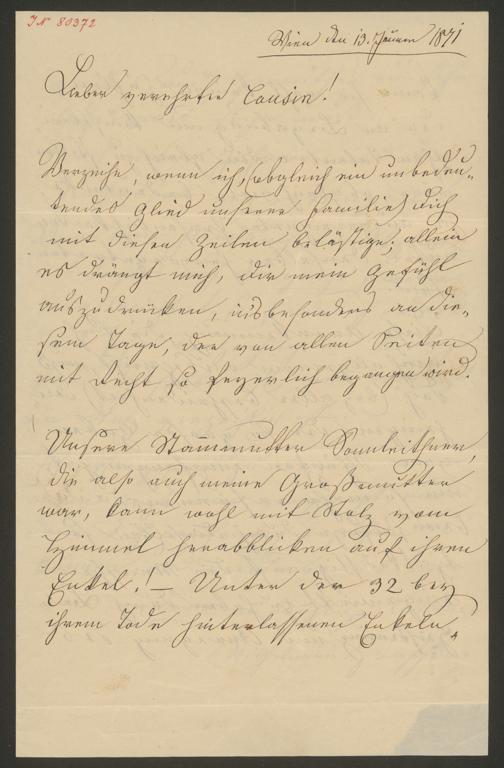 IN 80372
Wien den 13. Jänner 1871
Lieber verehrter Cousin!
Verzeihe, wenn ich, (obgleich ein unbedeu-
tendes Glied unserer Familie) Dich
mit diesen Zeilen belästige; allein
es drängt mich, Dir mein Gefühl
auszudrücken, insbesonders an die-
sem Tage, der von allen Seiten
mit Recht so feyerlich begangen wird.
Unsere Stammutter Sonnleithner,
die also auch meine Großmutter
war, kann wohl mit Stolz vom
Himmel herabblicken auf ihren
Enkel! – Unter den 32 bey
ihrem Tode hinterlassenen Enkeln